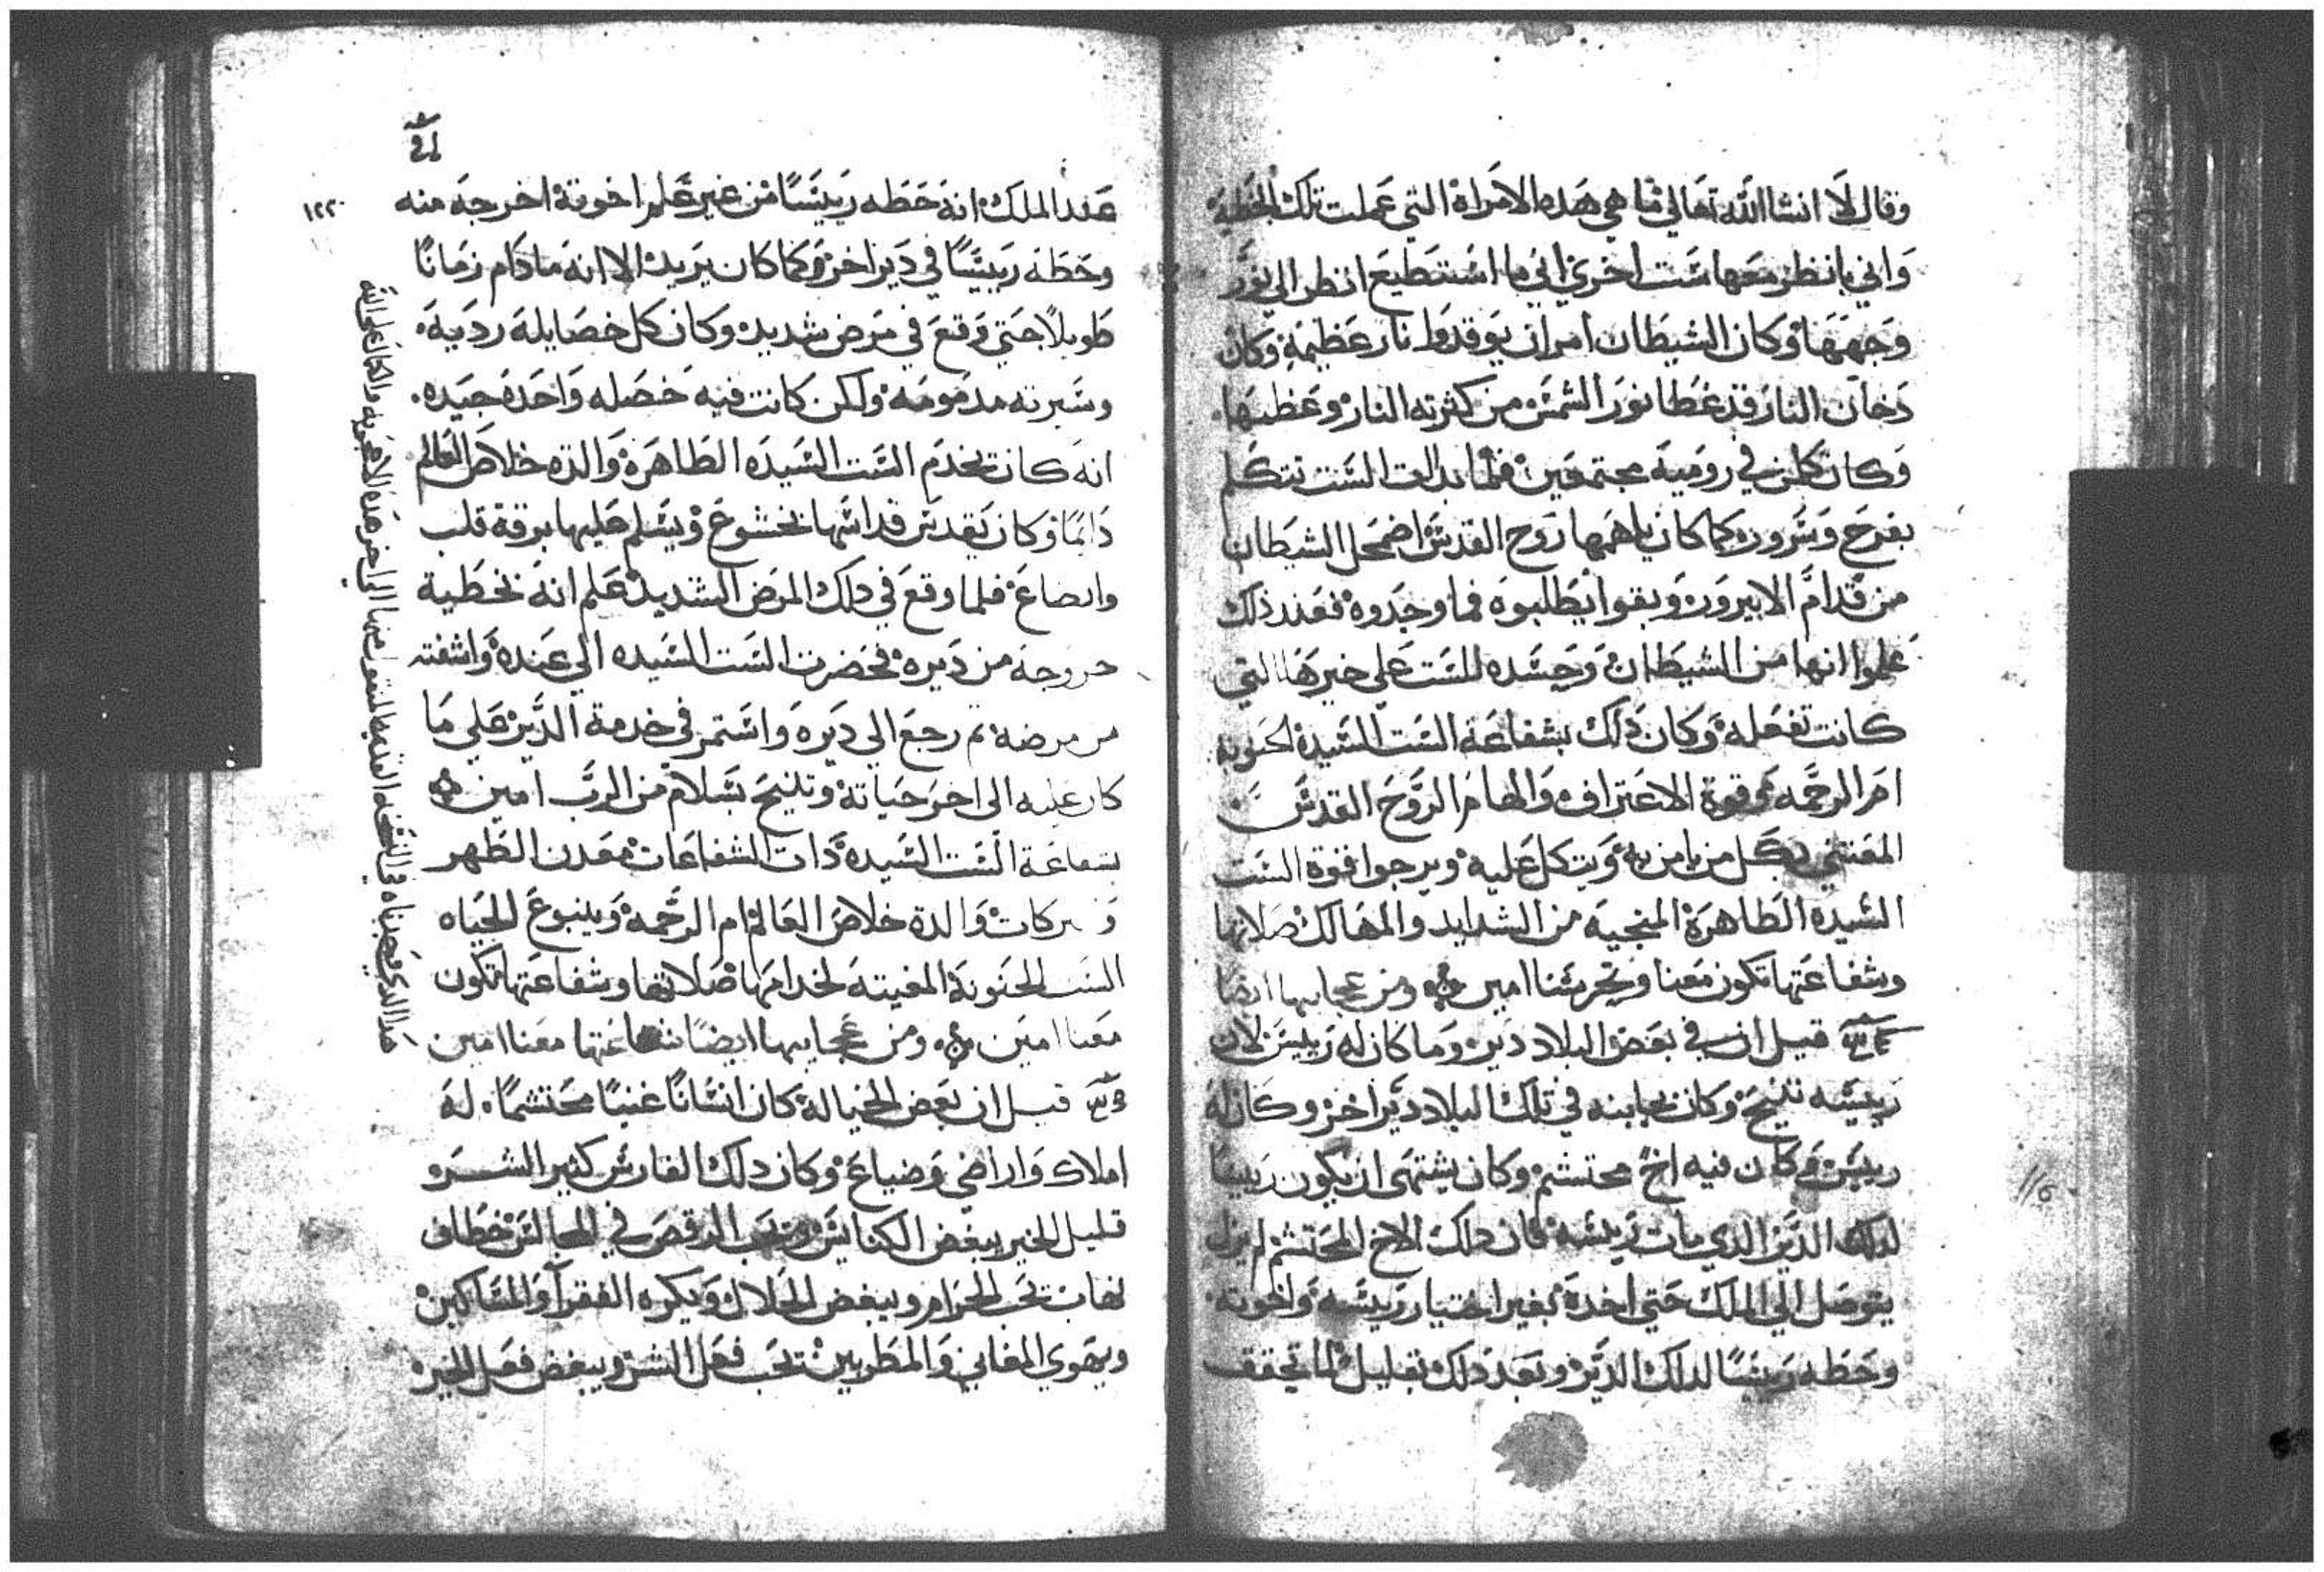 وقال لا انشاالله تعالي ما هي هده الامراة التي عملت تلك الخطية
واني بانظر معها ست اخري اني ما استطيع انظر الي نور
وجهها وكان الشيطان امر ان يوقدوا نار عظيمة وكان
دخان النار قد غطا نور الشمس من كثرته النار وعظمها
وكان كلن في رومية مجتمعين فلما بدات الست تتكلم
بفرح وسرور كما كان ياهمها روح القدس اضمحل الشيطان
من قدام الابيرور وبقوا يطلبوه فما وجدوه فعند ذلك
علموا انها من الشيطان وحسده للست علي خيرها التي
كانت تفعله وكان دلك بشفاعة الست السيدة الحنونة
ام الرحمه وقوة الاعتراف والهام الروح القدس
المعتني بكل من يامن به ويتكل عليه ويرجوا قوة الست
السيدة الطاهرة المنجيه من الشدايد والمهالك صلاتها
وشفاعتها تكون معنا وتحرسنا امين ومن عجايبها ايضا
قيل ان في بعض البلاد دير وما كان له رييس لان
رييسه تنيح وكان بجابنه في تلك البلاد دير اخر وكان له
رييس وكان فيه اخ محتشم وكان يشتهي ان يكون رييسا
لدلك الدير الدي مات رييسه فان دلك الاخ المحتشم لم يزل
يتوصل الي الملك حتي اخدة بغير اختيار رييسه واخوته
وحطه رييسا لدلك الدير وبعد دلك بقليل لما تحقق
116
١٢٢
عند الملك انه حطه رييسا من غير علم اخوتة اخرجه منه
وحطه رييسا في دير اخر وكما كان يريد الا انه ما دام زمانا
طويلا حتي وقع في مرض شديد وكان كل خصايله رديه
وسيرته مدمومه ولكن كانت فيه خصله واحدة جيده
انه كان يخدم الست السيده الطاهرة والدة خلاص العالم
دايما وكان يقدس قداسها بخشوع ويسلم عليها برقة قلب
واتضاع فلما وقع في دلك المرض الشديد علم انه بخطية
خروجه من ديره فحضرت الست السيده الي عنده واشفته
من مرضه ثم رجع الي ديره واستمر في خدمة الدير علي ما
كان عليه الي اخر حياتة وتنيح بسلام من الرب امين
بشفاعة الست السيدة دات الشفاعات معدن الطهر
والبركات والدة خلاص العالم ام الرحمة وينبوع الحياه
الست الحنونة المغيته لخدامها صلاتها وشفاعتها تكون
معنا امين ومن عجايبها ايضا شفاعتها معنا امين
قيل ان بعض الخيالة كان انسانا غنيا محتشما له
املاك واراضي وضياع وكان دلك الفارس كثير الشرو
قليل الخير يبغض الكنايس ويحب الرقص في المجالس خطاف
نهاب يحب الحرام ويبغض الحلال ويكره الفقرا والمساكين
ويهوي المغاني والمطربين يحب فعل الشر ويبغض فعل الخير